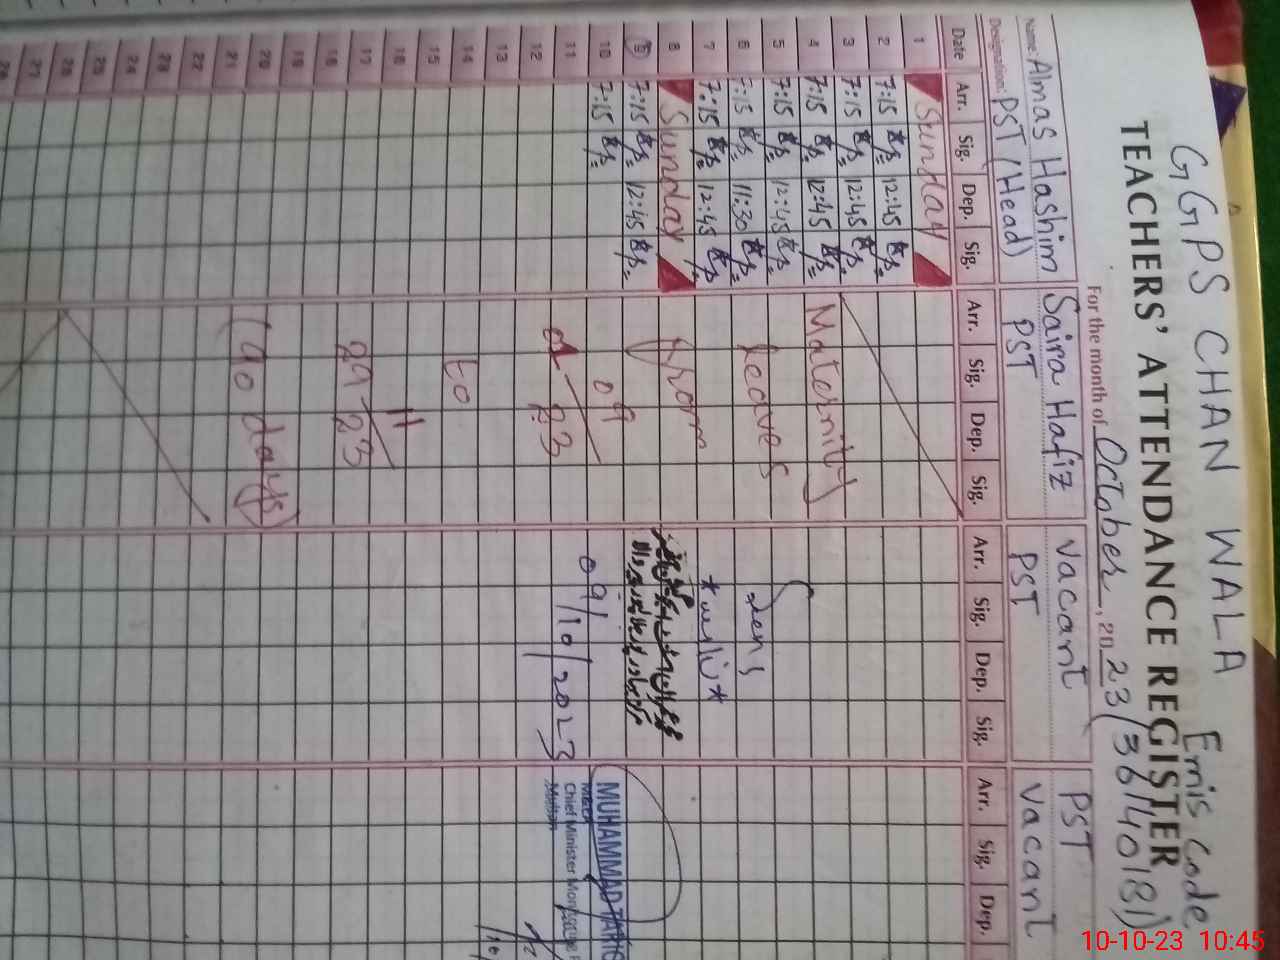 GGPS CHAN WALA Emis Code
TEACHERS' ATTENDANCE REGISTER
For the month of October, 2023 (36140181)
Name: Almas Hashim Saira Hafiz Vacant PST
Designation: PST (Head) PST PST Vacant
Date Arr. Sig. Dep. Sig. Arr. Sig. Dep. Sig. Arr. Sig. Dep. Sig. Arr. Sig. Dep.
1 Sunday
2 7:15 12:45
3 7:15 12:45
4 7:15 12:45 Maternity
5 7:15 12:45
6 7:15 11:30 Leaves
7 7:15 12:45
8 Sunday From
9 7:15 12:45
10 7:15 09 MUHAMMAD TARIQ
11 01 23 09/10/2023 Chief Minister Monitoring F
12
13
14 to
15
16 11
17 29 23
18
19
20 (90 days)
21
22
23
24
25
26
27
28
10-10-23 10:45